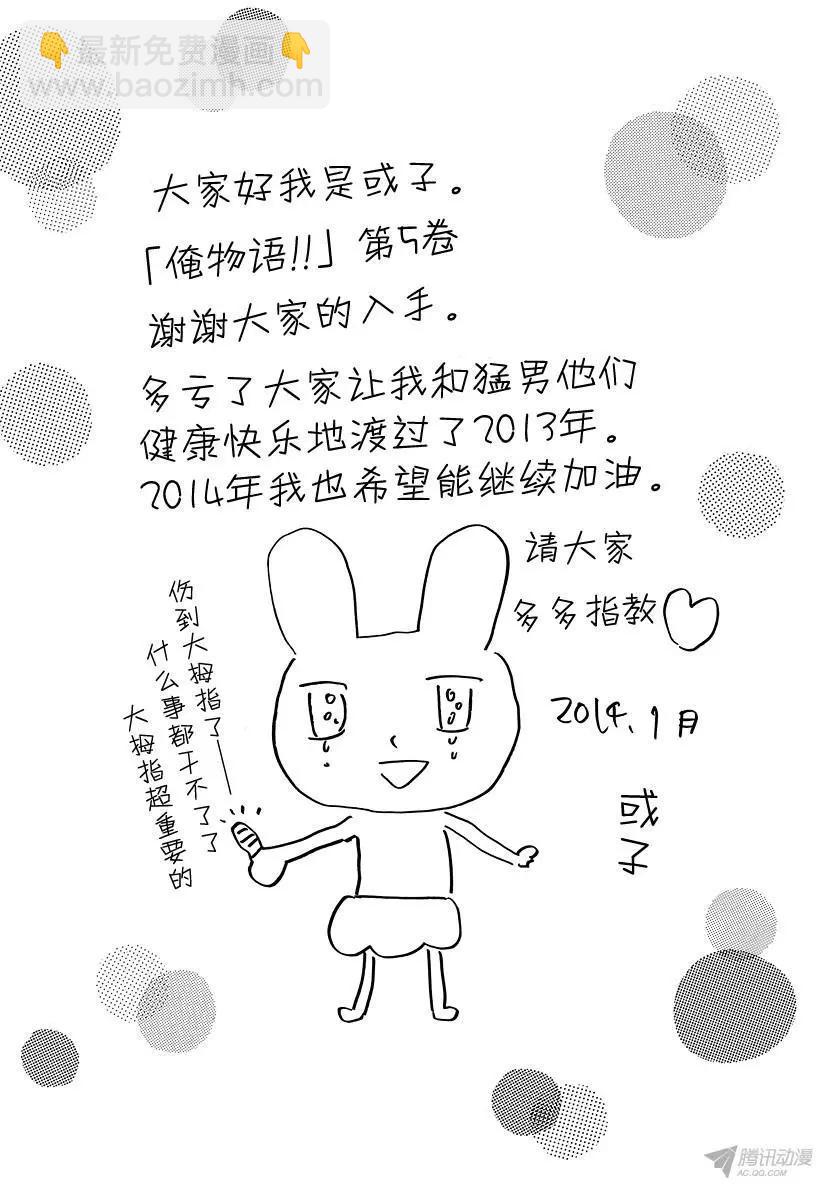 👇最新免费漫画👇
www.baozimh.com
大家好我是或子。
「俺物语!!」第5卷
谢谢大家的入手。
多亏了大家让我和猛男他们
健康快乐地渡过了2013年。
2014年我也希望能继续加油。
请大家
多多指教♡
伤到大拇指了——
什么事都干不了了
大拇指超重要的
2014.1月
或子
腾讯动漫
AC.QQ.COM